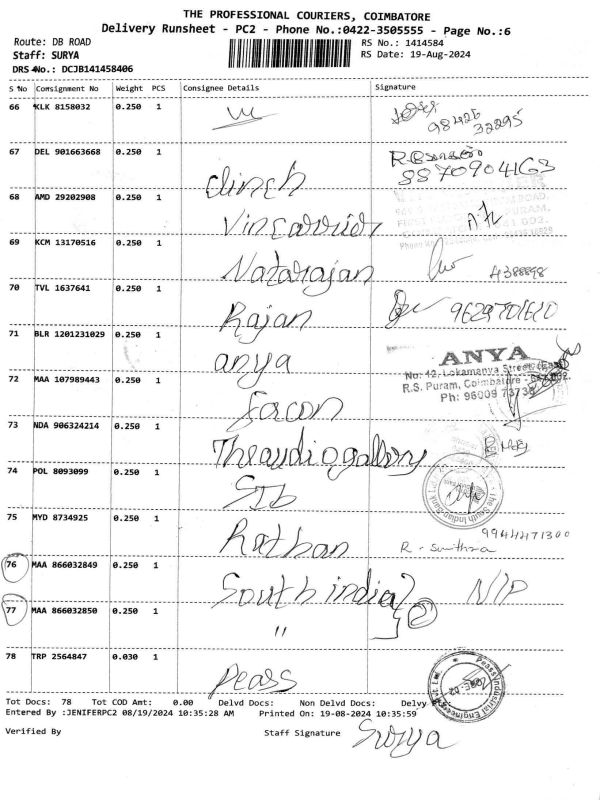 THE PROFESSIONAL COURIERS, COIMBATORE
Delivery Runsheet - PC2 - Phone No.:0422-3505555 - Page No.:6
Route: DB ROAD
RS No.: 1414584
Staff: SURYA
RS Date: 19-Aug-2024
DRS No.: DCJB141458406
S No Consignment No Weight PCS Consignee Details Signature
66 KLK 8158032 0.250 1
98426
32295
67 DEL 901663668 0.250 1
Clinch
68 AMD 29202908 0.250 1
69 KCM 13170516 0.250 1
Natarajan
70 TVL 1637641 0.250 1
Rajan
71 BLR 1201231029 0.250 1
anya
ANYA
No: 12, Lokamanya Street, (East)
R.S. Puram, Coimbatore -
Ph: 96009
72 MAA 107989443 0.250 1
73 NDA 906324214 0.250 1
Theaudiogallery
74 POL 8093099 0.250 1
SIb
75 MYD 8734925 0.250 1
Rathan
9944471300
76 MAA 866032849 0.250 1
South india
77 MAA 866032850 0.250 1
"
78 TRP 2564847 0.030 1
Peass
Tot Docs: 78 Tot COD Amt: 0.00 Delvd Docs: Non Delvd Docs: Delvy
Entered By :JENIFERPC2 08/19/2024 10:35:28 AM Printed On: 19-08-2024 10:35:59
Verified By Staff Signature Surya